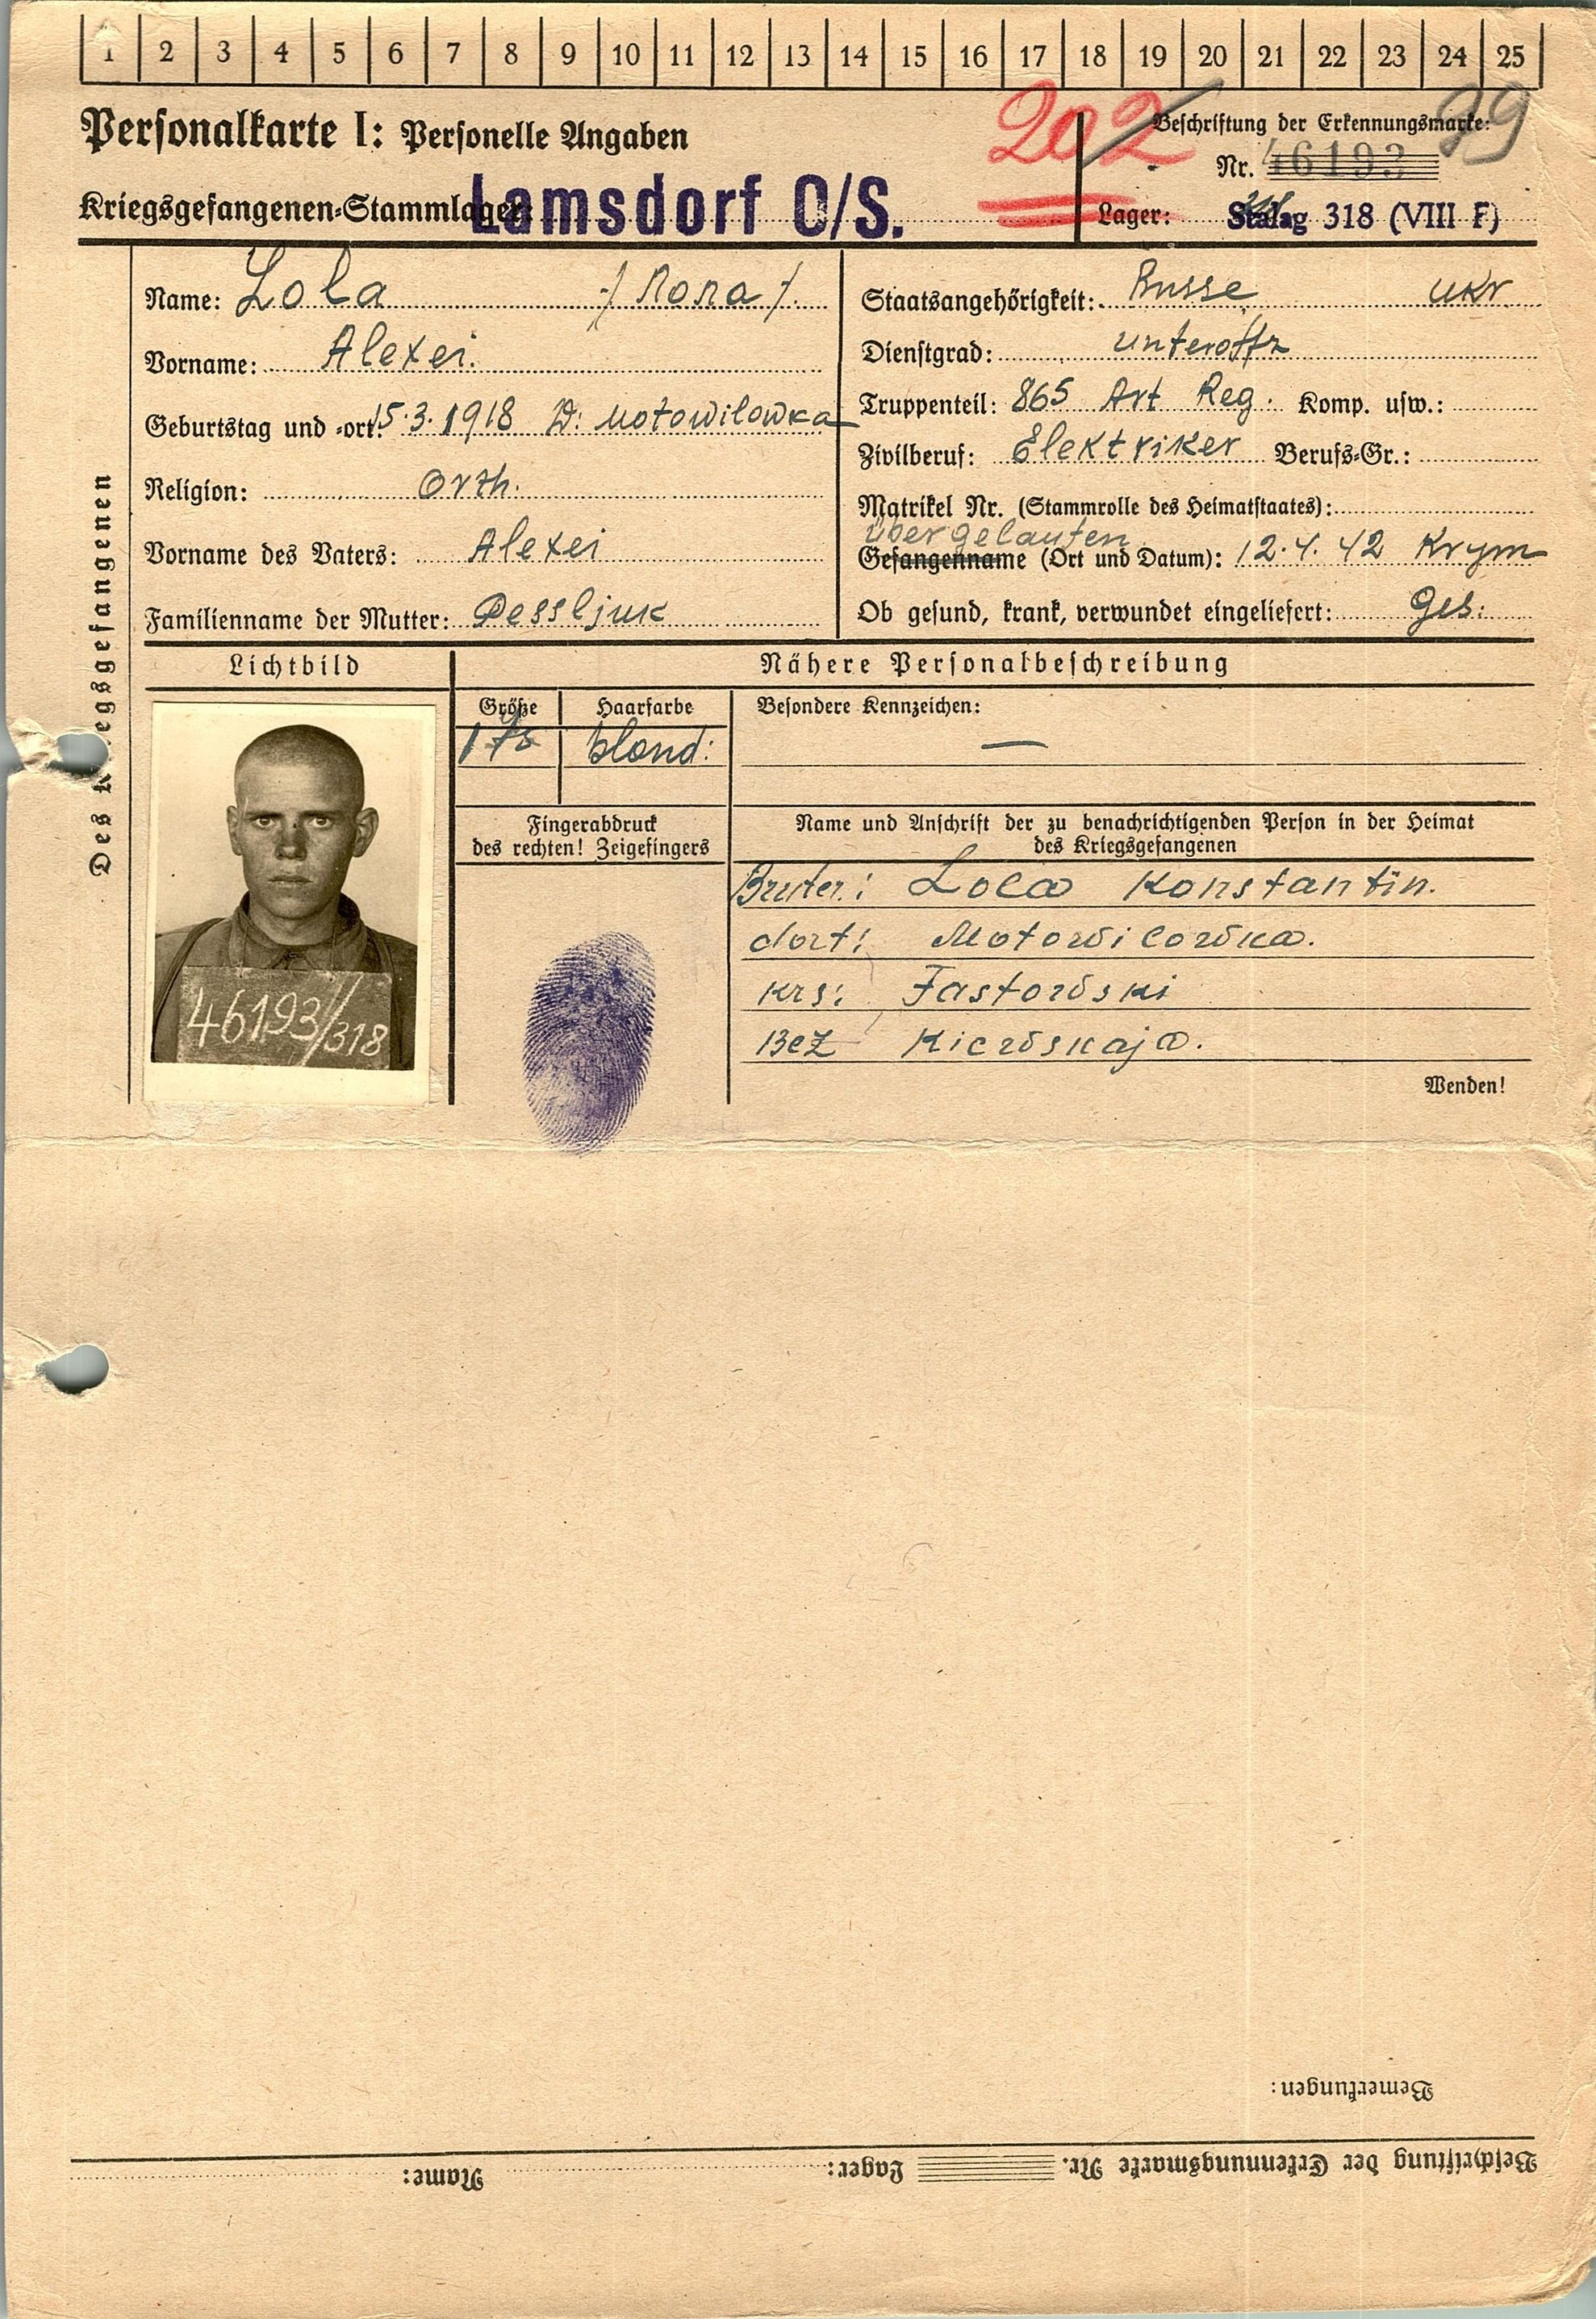 1 2 3 4 5 6 7 8 9 10 11 12 13 14 15 16 17 18 19 20 21 22 23 24 25
Personalkarte I: Personelle Angaben
202
Beschriftung der Erkennungsmarke:
Nr. 46193
Kriegsgefangenen-Stammlager: Lamsdorf O/S.
Lager: Stalag 318 (VIII F)
Des Kriegsgefangenen
Name: Lola
Vorname: Alexei.
Geburtstag und -ort: 15.3.1918 D: Motowilowka
Religion: Orth.
Vorname des Vaters: Alexei
Familienname der Mutter: Pessljuk
Staatsangehörigkeit: Russe ukr
Dienstgrad: Unteroffz
Truppenteil: 865 Art Reg. Komp. usw.:
Zivilberuf: Elektriker Berufs-Gr.:
Matrikel Nr. (Stammrolle des Heimatstaates):
übergelaufen
Gefangenname (Ort und Datum): 12.4.42 Krym
Ob gesund, krank, verwundet eingeliefert: Ges:
Lichtbild
46193/318
Nähere Personalbeschreibung
Größe
Haarfarbe
blond:
Besondere Kennzeichen:
—
Fingerabdruck
des rechten! Zeigefingers
Name und Anschrift der zu benachrichtigenden Person in der Heimat
des Kriegsgefangenen
Bruter: Lola Konstantin.
dort: Motowilowka.
Krs: Fastowski
Bez Kiewskaja.
Wenden!
Bemerkungen:
Beschriftung der Erkennungsmarke Nr. Lager: Name: